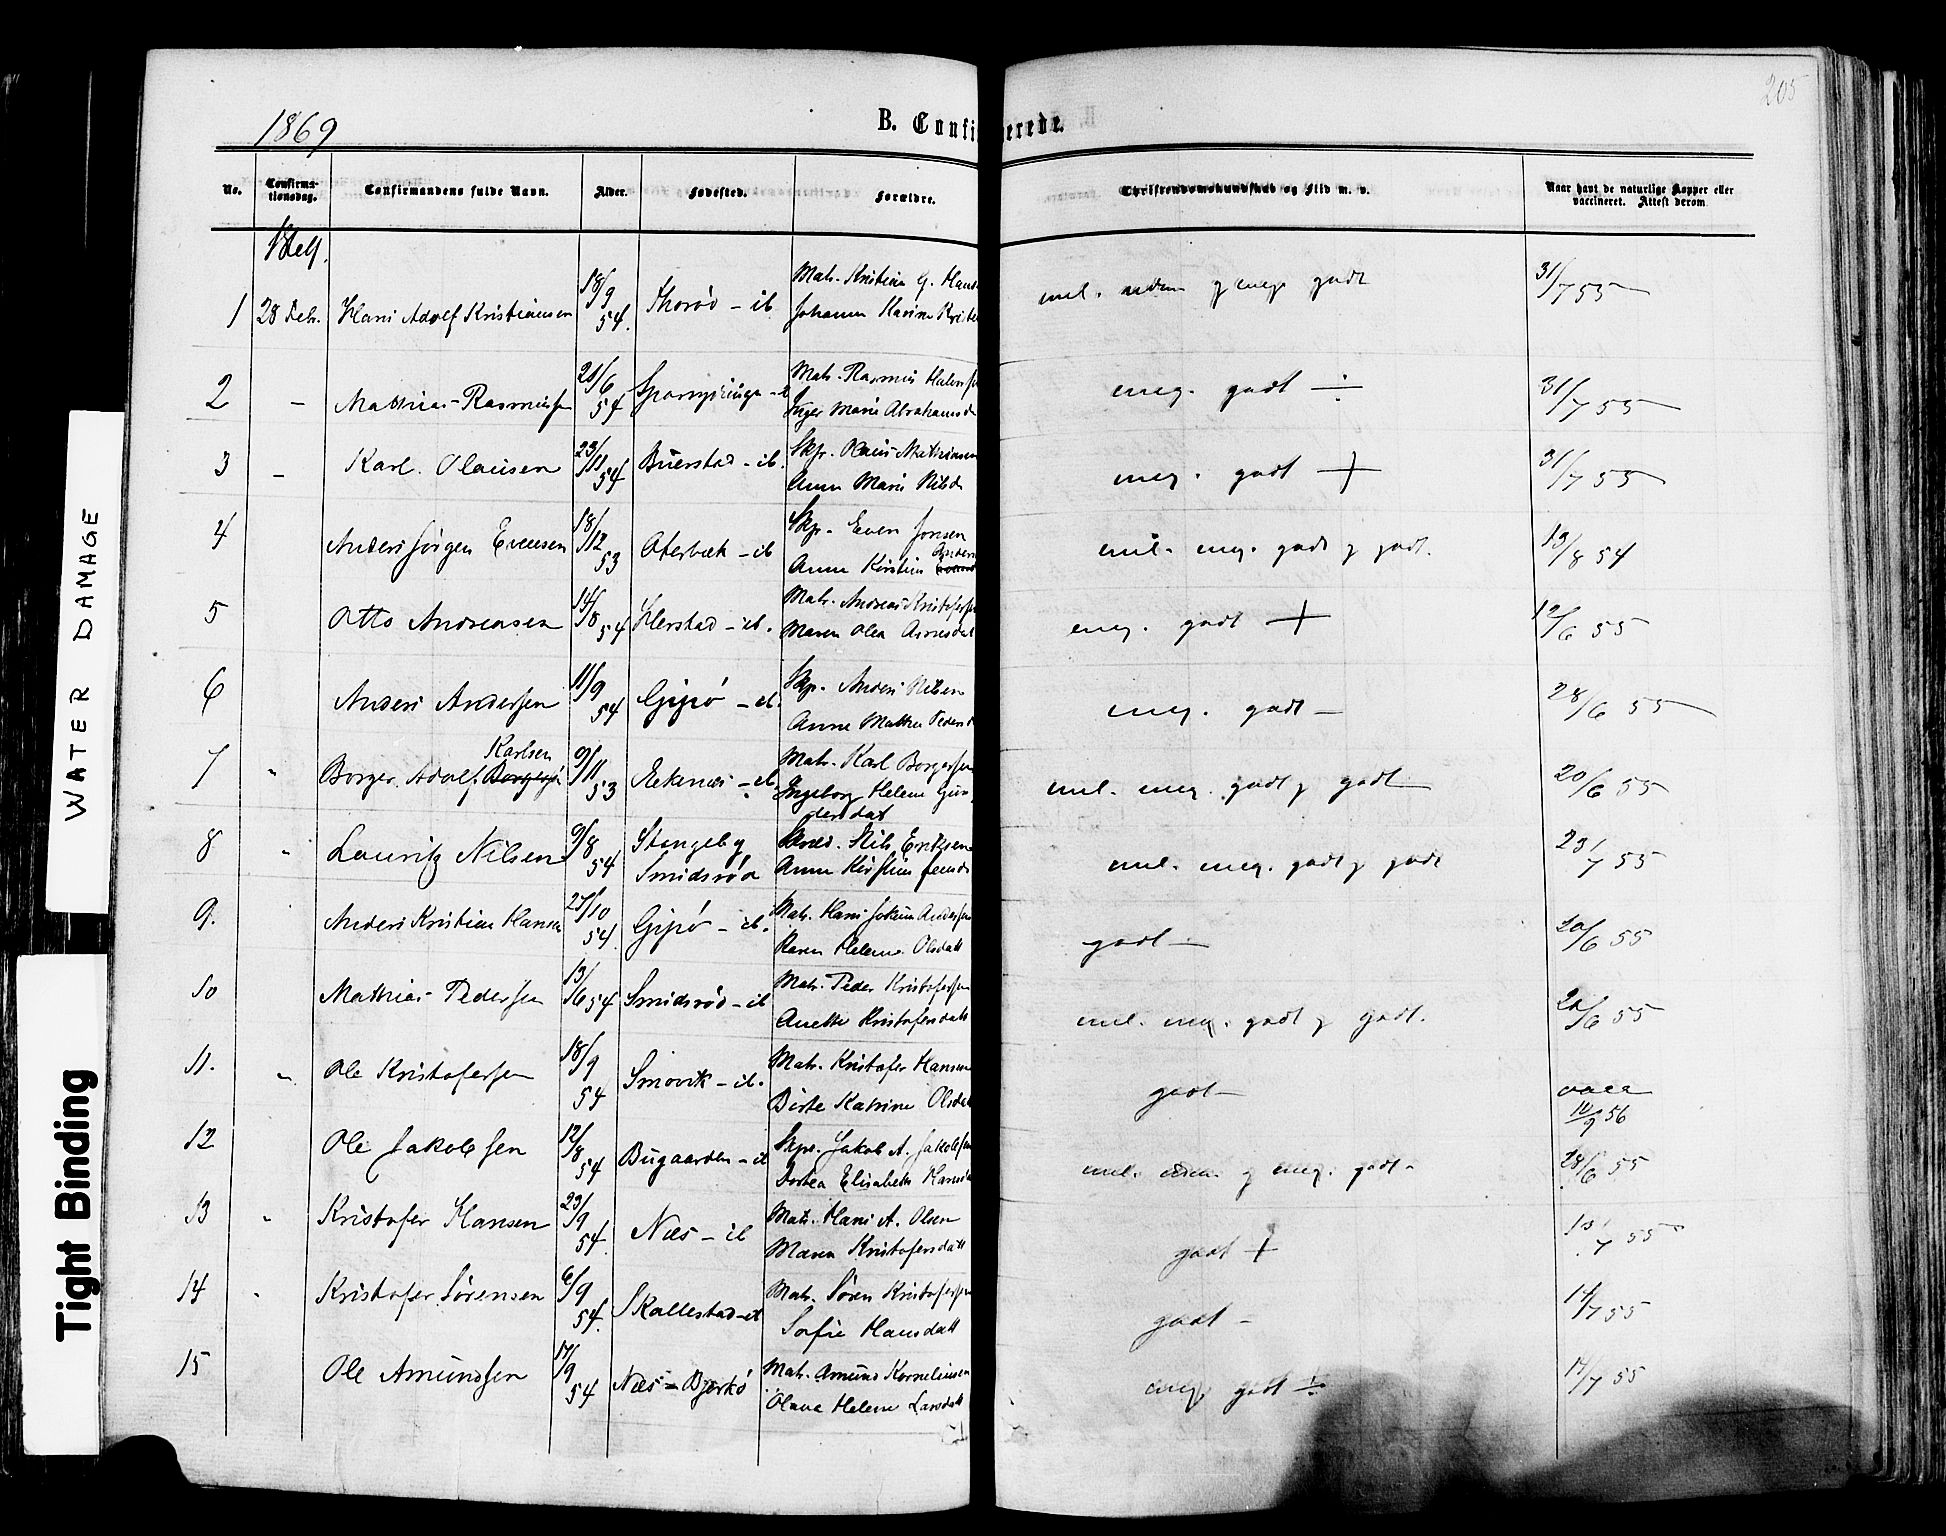 205
1869 B. Confirmerede.
No. Confirmationsdag. Confirmandens fulde Navn. Alder. Fødested. Forældre. Christendomskundskab og Flid m. v. Naar havt de naturlige Kopper eller vaccineret. Attest derom
1 28 Feb. Hans Adolf Kristiansen 18/9 54. Thorød - ib Matr. Kristian G. Hans Johanne Karine mel. udm. g meg. godt 31/7 55
2 - Mathias Rasmussen 21/6 54 Matr. Rasmus Inger Marie Abrahamsd meg. godt ÷ 31/7 55
3 - Karl Olausen 23/11 54 Buerstad - ib. Skp. Olaus Mathiasen Anne Marie Nilsd meg. godt + 31/7 55
4 Anders Jørgen Evensen 18/12 53 Oterbæk - ib Skp. Even Jonsen Anne Kirstine Anders mel. meg. godt g godt. 13/8 54
5 Otto Andreasen 14/8 54 Herstad - ib. Matr. Andreas Kristofersen Maren Olea Arnesdat meg. godt + 12/6 55
6 Anders Andersen 11/9 54 Gipø - ib. Skp. Anders Nilsen Anne Mathea Pedersd meg. godt - 28/6 55
7 " Borger Adolf Karlsen 9/11 53 Ekenæs - ib Matr. Karl Borgersen Ingeborg Helene Gundersdat mel. meg. godt g godt 20/6 55
8 " Lauritz Nilsen 9/8 54 Stangeby Smidsrød Nils Eriksen Anne Kirstine Jensd mel. meg. godt g godt 23/7 55
9. Anders Kristian Hansen 27/10 54. Gipø - ib. Matr. Hans Jokum Andersen Karen Helene Olsdatt godt - 20/6 55
10 Mathias Pedersen 13/6 54 Smidsrød - ib Matr. Peder Kristofersen Anette Kristofersdatt mel. meg. godt g godt. 20/6 55
11. " Ole Kristofersen 18/9 54 Snovik - ib. Matr. Kristofer Hansen Birte Katrine Olsdat godt - vacc 10/9 56
12 Ole Jakobsen 12/8 54 Bugaarden - ib Skpr. Jakob A. Jakobsen Dortea Elisabeth Hansd mel. udm. g meg. godt - 28/6 55
13 " Kristofer Hansen 23/9 54. Næs - ib Matr. Hans A. Olsen Maren Kristofersdatt godt + 13/7 55
14 " Kristofer Sørensen 6/9 54. Skallestad - ib Matr. Søren Kristofersen Sofie Hansdatt godt - 14/7 55
15 Ole Amundsen 17/9 54 Næs - Bjerkø Matr. Amund Korneliusen Olava Helene Larsdatt meg. godt ÷ 17/7 55
WATER DAMAGE
Tight Binding